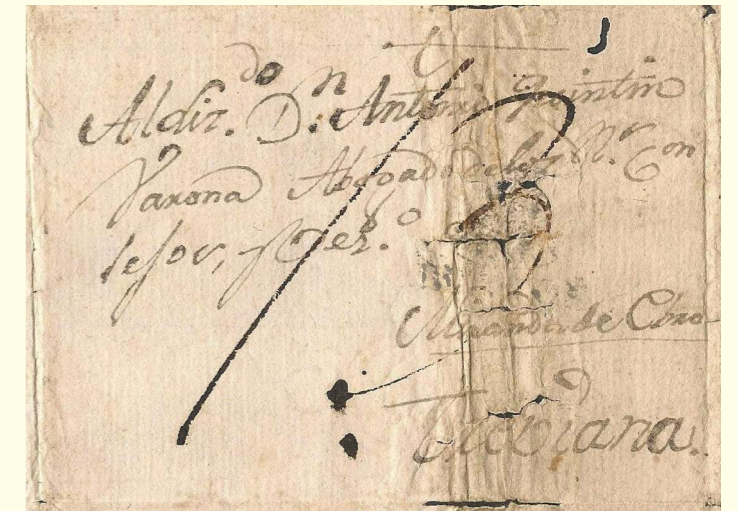 Al Liz.do D.n Antonio Quintin
Varona Abogado de los R.s Con
sejos,
Miranda de Ebro
Treviana.